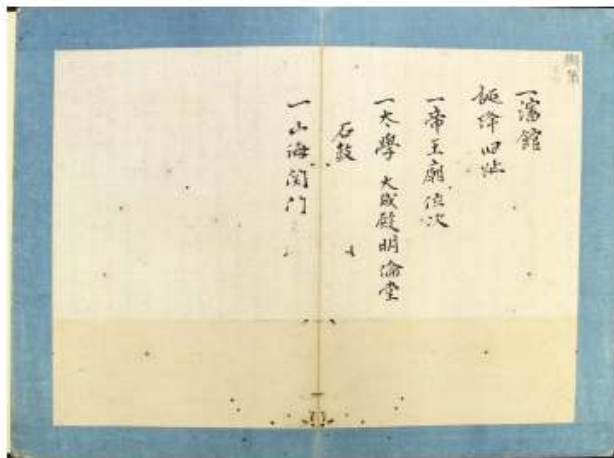 一瀋館
誕降旧址
一帝王廟位次
一太學 大成殿明倫堂
石鼓
一山海関门